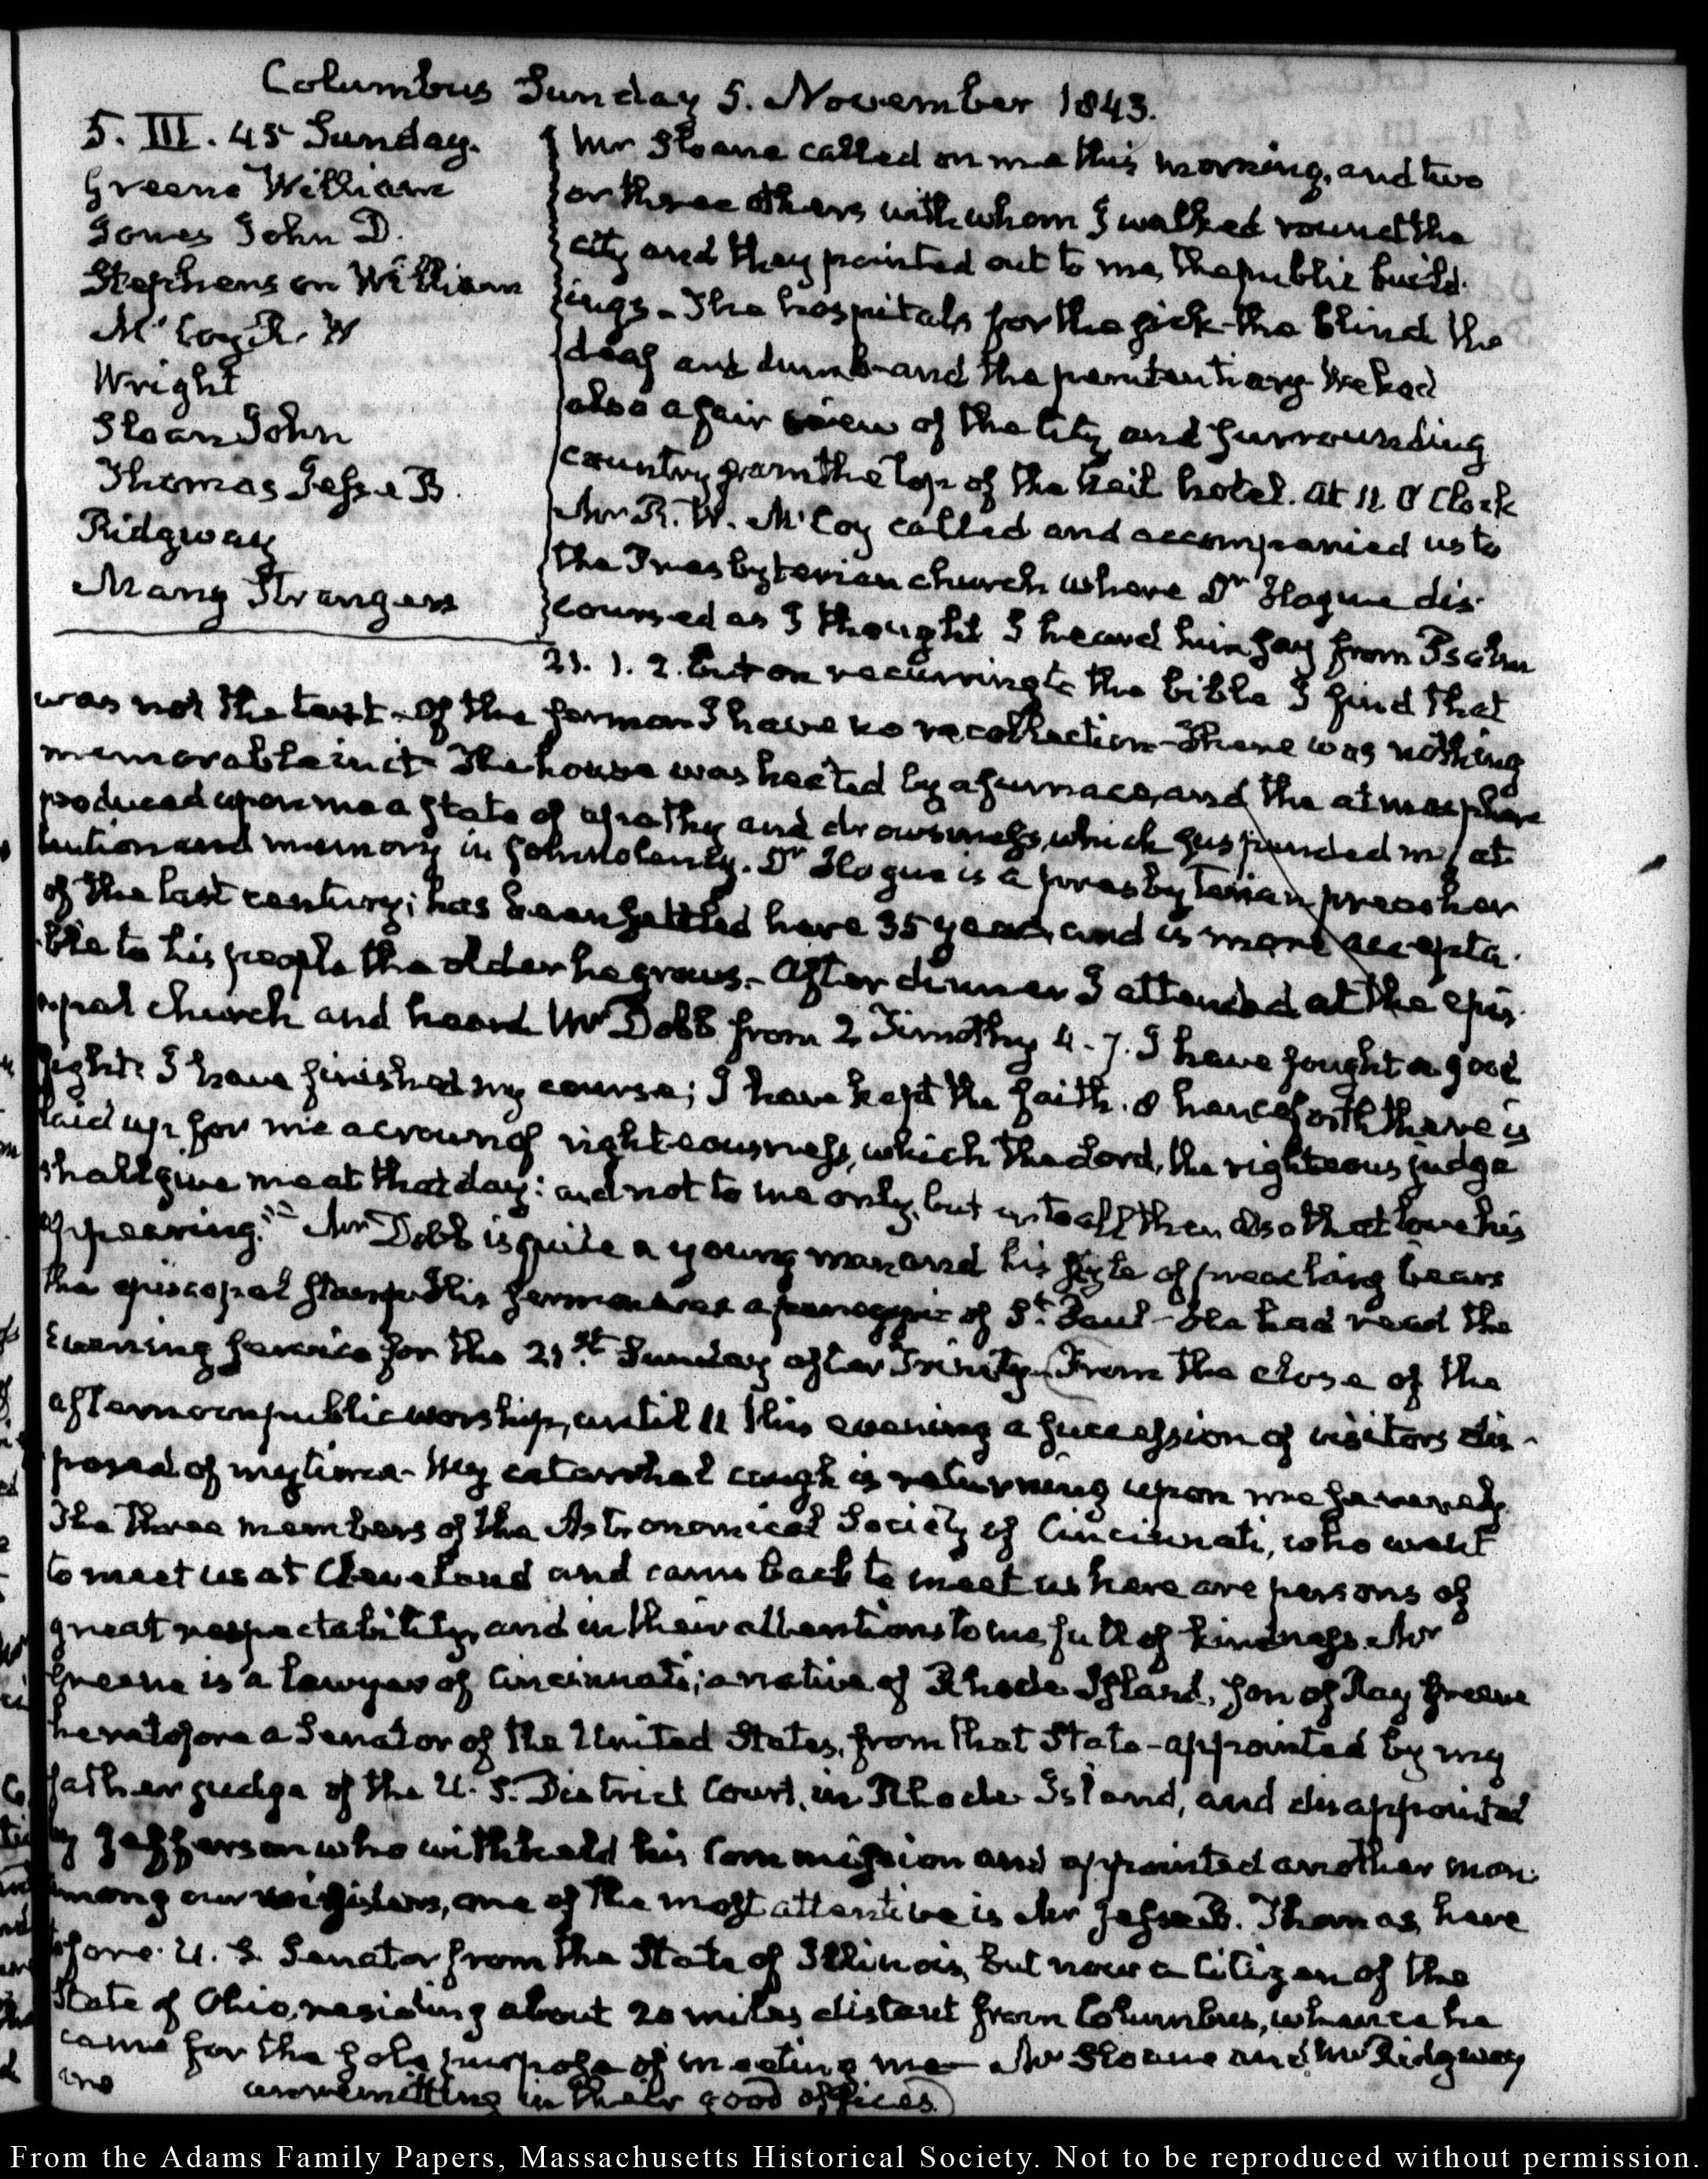 Columbus Sunday 5. November 1843.
5. III. 45 Sunday.
Greene William
Jones John D.
Stephenson William
McCoy R. W
Wright
Sloan John
Thomas Jesse B.
Ridgway
Many Strangers
Mr Sloane called on me this morning, and two
or three others with whom I walked round the
city and they pointed out to me, the public build-
ings - The hospitals for the sick - the blind the
deaf and dumb - and the penitentiary - We had
also a fair view of the City and surrounding
country from the top of the hotel. At 11. O'Clock
Mr R. W. McCoy called and accompanied us to
the Presbyterian church where Dr Hogue dis-
coursed as I thought I heard him say from Psalm
21. 1. 2. but on recurring to the bible I find that
was not the text - of the sermon I have no recollection - There was nothing
memorable in it - The house was heated by a furnace, and the atmosphere
produced upon me a state of apathy and drowsiness, which suspended my at-
tention and memory in somnolency. Dr Hogue is a presbyterian preacher
of the last century; has been settled here 35 years, and is more accepta-
ble to his people the older he grows. - After dinner I attended at the epis-
copal church and heard Mr Dobb from 2 Timothy 4. 7. I have fought a good
fight. I have finished my course; I have kept the faith. 8 henceforth there is
laid up for me a crown of righteousness, which the Lord, the righteous judge
shall give me at that day: and not to me only, but unto all them also that love his
appearing." Mr Dobb is quite a young man and his style of preaching bears
the episcopal stamp. His sermon was a panegyric of St. Paul - He had read the
Evening service for the 21st. Sunday after Trinity. (From the close of the
afternoon public worship, until 11 this evening a succession of visitors dis-
posed of my time - My catarrhal cough is returning upon me severely.
The three members of the Astronomical Society of Cincinnati, who went
to meet us at Cleveland and came back to meet us here are persons of
great respectability, and in their attentions to me, full of kindness. Mr
Greene is a lawyer of Cincinnati; a native of Rhode Island, son of Ray Greene
heretofore a Senator of the United States, from that State - appointed by my
father judge of the U. S. District Court, in Rhode Island, and disappointed
by Jefferson who withheld his Commission and appointed another man.
Among our visitors, one of the most attentive is Mr Jesse B. Thomas, here
tofore U. S. Senator from the State of Illinois, but now a Citizen of the
State of Ohio, residing about 20 miles distant from Columbus, whence he
came for the sole purpose of meeting me - Mr Sloane and Mr Ridgway
are unremitting in their good offices.)
From the Adams Family Papers, Massachusetts Historical Society. Not to be reproduced without permission.